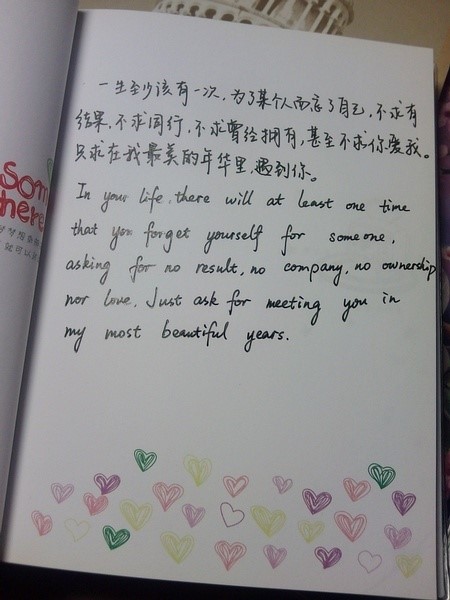 一生至少该有一次，为了某个人而忘了自己，不求有
结果，不求同行，不求曾经拥有，甚至不求你爱我。
只求在我最美的年华里，遇到你。
In your life, there will at least one time
that you forget yourself for someone,
asking for no result, no company, no ownership
nor love. Just ask for meeting you in
my most beautiful years.
som
here